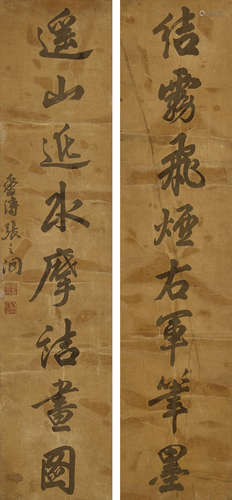 结雾飛煙右軍筆墨
遥山近水摩詰畫圖
香濤張之洞